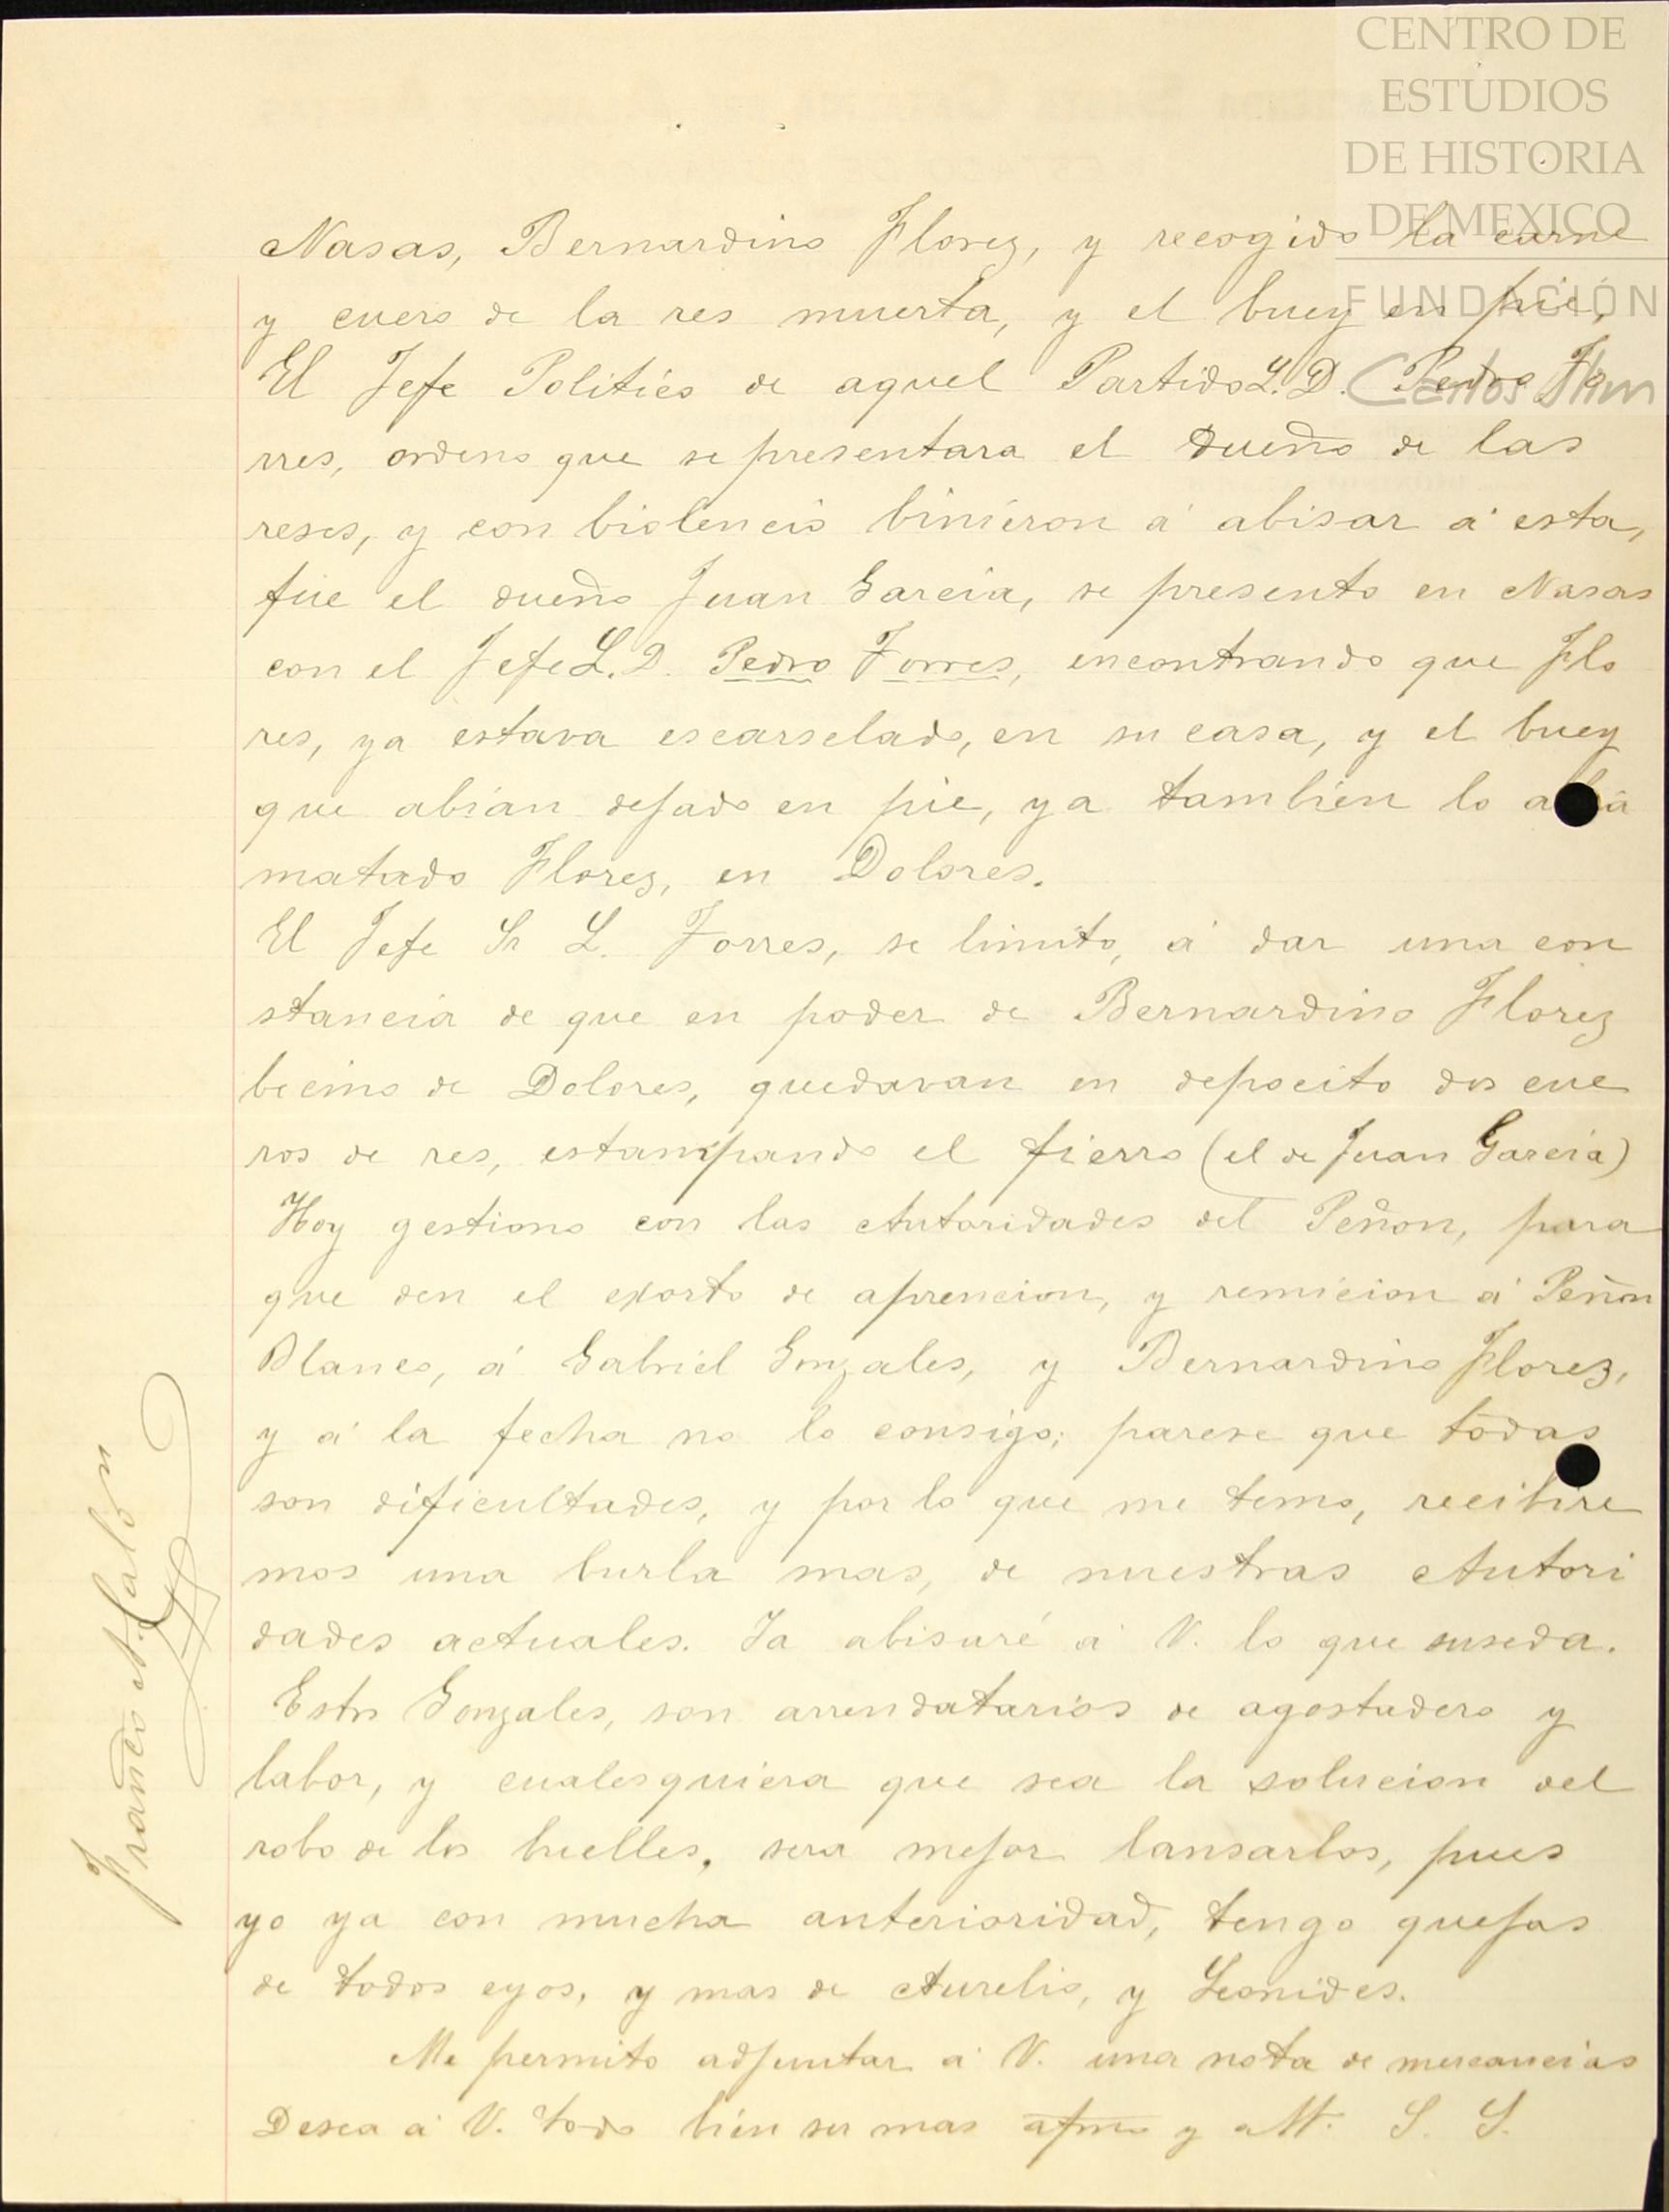 CENTRO DE
ESTUDIOS
DE HISTORIA
DE MEXICO
FUNDACIÓN
Carlos Slim
Nasas, Bernardino Florez, y recogido la carne
y cuero de la res muerta, y el buey en pie,
El Jefe Politico de aquel Partido L. D. Pedro To
rres, ordeno que se presentara el dueño de las
reses, y con biolencia binieron á abisar á esta,
fue el dueño Juan Garcia, se presento en Nasas
con el Jefe L. D. Pedro Torres, encontrando que Flo
res, ya estava escarselado, en su casa, y el buey
que abian dejado en pie, ya tambien lo a
matado Florez, en Dolores.
El Jefe Sr L. Torres, se limito, á dar una con
stancia de que en poder de Bernardino Florez
becino de Dolores, quedavan en depocito dos cue
ros de res, estampando el fierro (el de Juan Garcia)
Hoy gestiono con las Autoridades del Peñon, para
que den el exorto de aprencion, y remicion á Peñon
Blanco, á Gabriel Gonzales, y Bernardino Florez,
y á la fecha no lo consigo; parese que todas
son dificultades, y por lo que me temo, recibire
mos una burla mas, de nuestras Autori
dades actuales. Ya abisaré á V. lo que suseda.
Estos Gonzales, son arrendatarios de agostadero y
labor, y cualesquiera que sea la solucion del
robo de los buelles, sera mejor lansarlos, pues
yo ya con mucha anterioridad, tengo quejas
de todos eyos, y mas de Aurelio, y Leonides.
Me permito adjuntar á V. una nota de mercancias
Desea á V. todo bien su mas afmo y att. S. S.
Franco A. Galvn